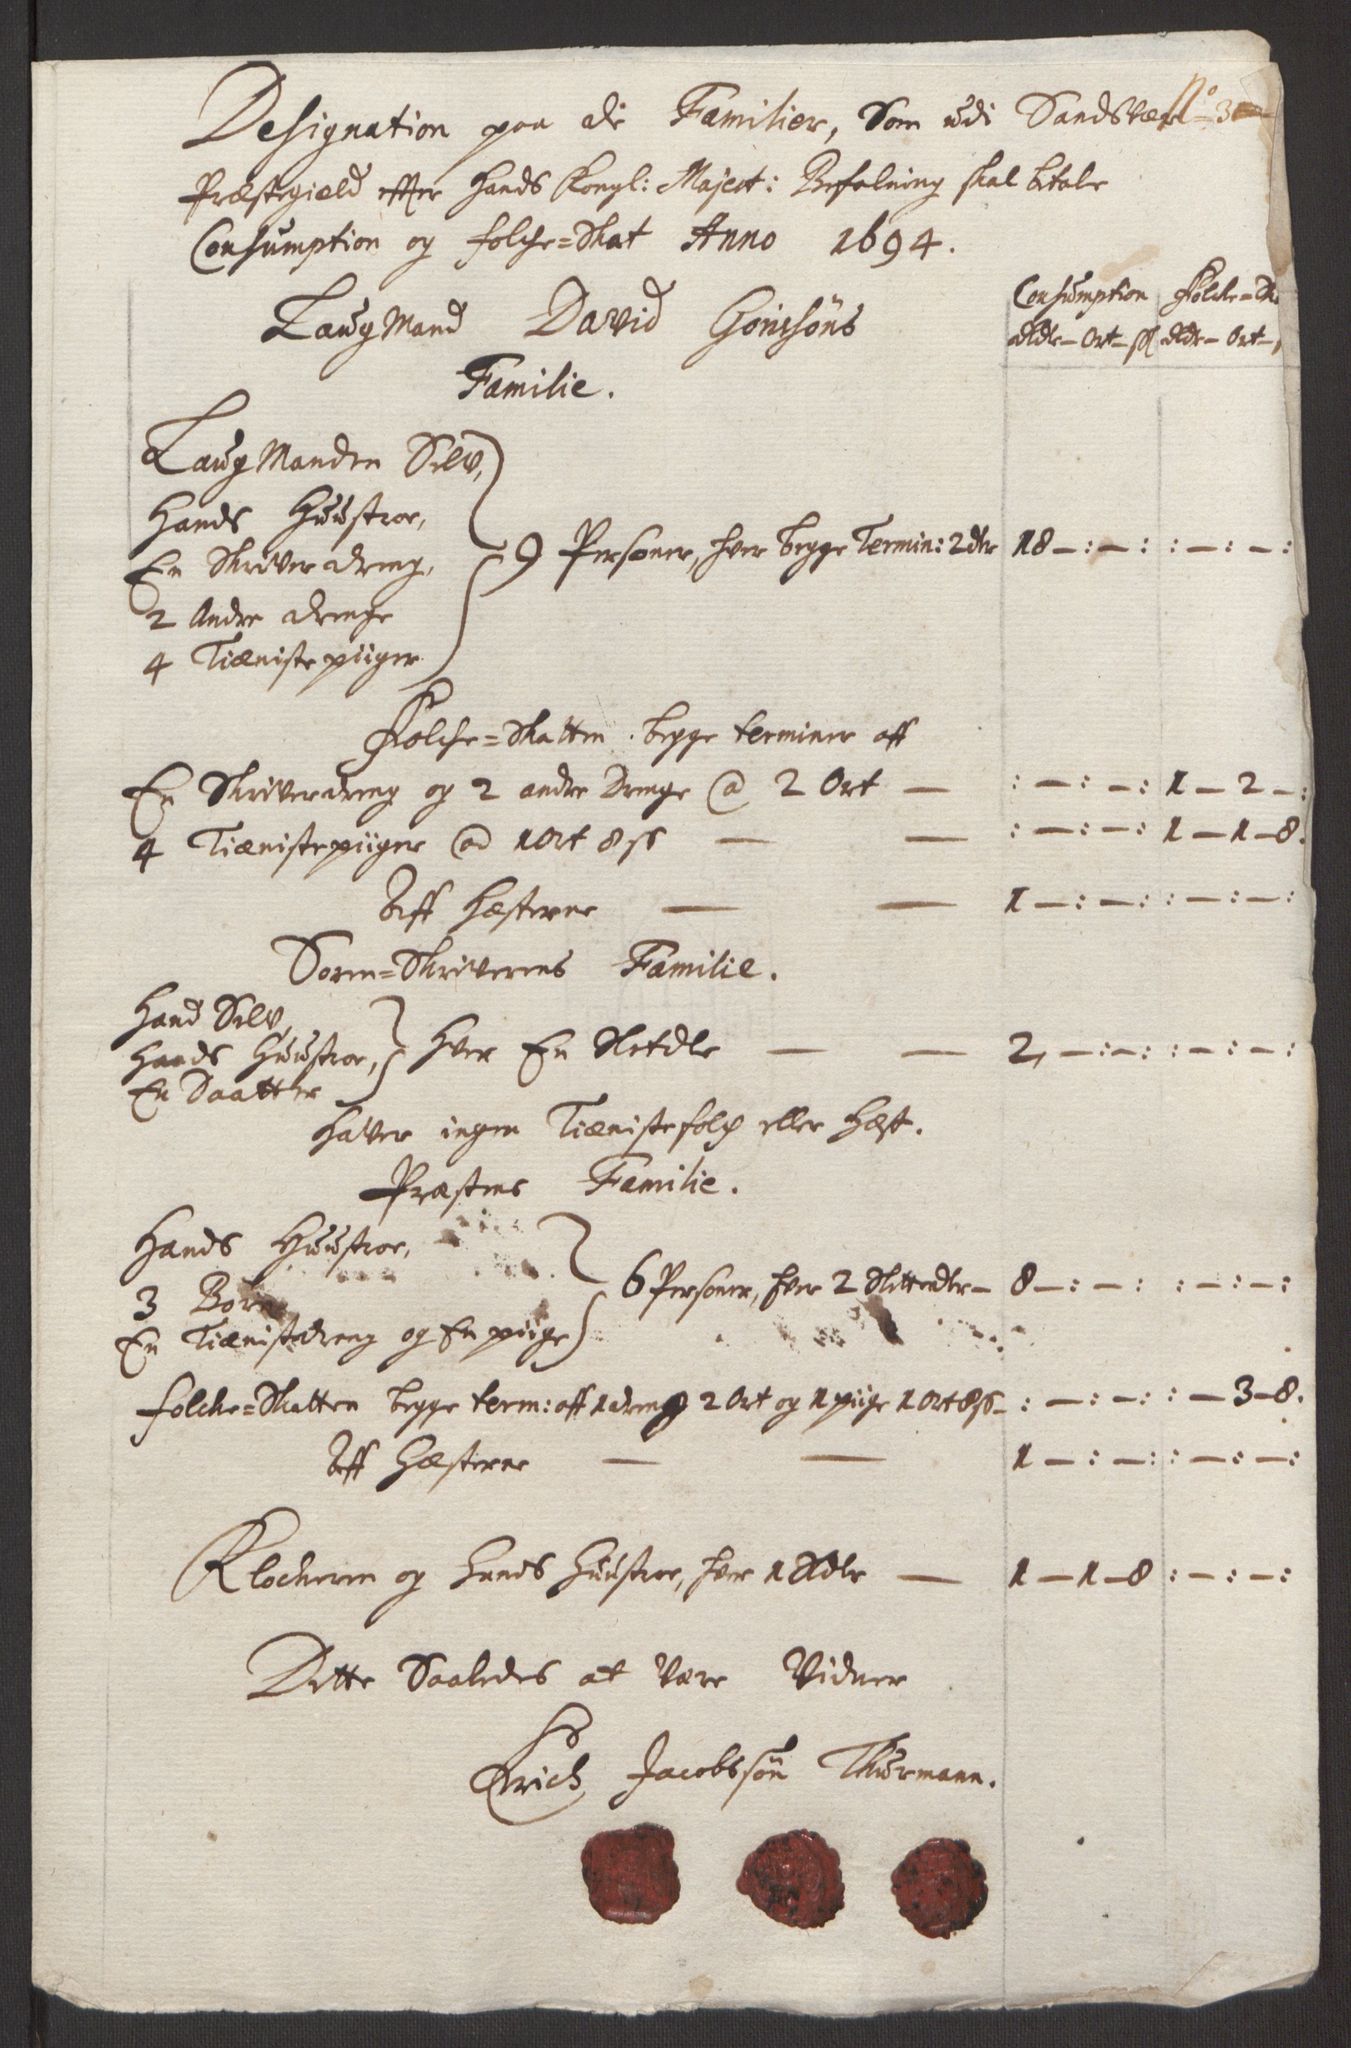 No 3
Designation paa de Familier, Som udi Sandsvær
Præstegield efter hands Kongl: Majest: Befalning skal betale
Consumption og folche=Skat Anno 1694.
Consumption Folche=Sk
Laugmand David Gönssöns
dldr - Ort - ss dldr - Ort -
Familie.
Laugmanden Selv,
hands Huustroe,
En Skriverdreng,
2 Andre drenge
4 Tieniste piiger
9 Personer, hver begge Termin: 2 dlr 18 - : - : : - : - :
Folche=Skatten begge terminer aff
En Skriverdreng og 2 andre Drenge @ 2 Ort - : - : - : 1 - 2 - :
4 Tienistepiiger @ 1 Ort 8 ss - - : - : - : 1 - 1 - 8.
Aff Hæsterne - - 1 - : - : : - : - :
Soren=Skriverens Familie.
Hand Selv,
Hands Huustroe,
En Daatter
hver En Sletdlr - - 2, - : - : : - : - :
Haver ingen Tienistefolch eller Hæst.
Præstens Familie.
Hands Huustroe,
3 Börn
En Tienistedreng og En piige
6 Personer, hver 2 Slettedlr - 8 - : - : : - : - :
folche=Skatten begge term: aff 1 dreng 2 Ort og 1 piige 1 Ort 8 ss - : - : - : : - 3 - 8.
Aff Hæsterne - - 1 - : - : : - : - :
Klocheren og Hands Huustroe, hver 1 Sldlr - 1 - 1 - 8 : - : - :
Dette Saaledes at være Vidner
Erich Jacobssön Thurmann.